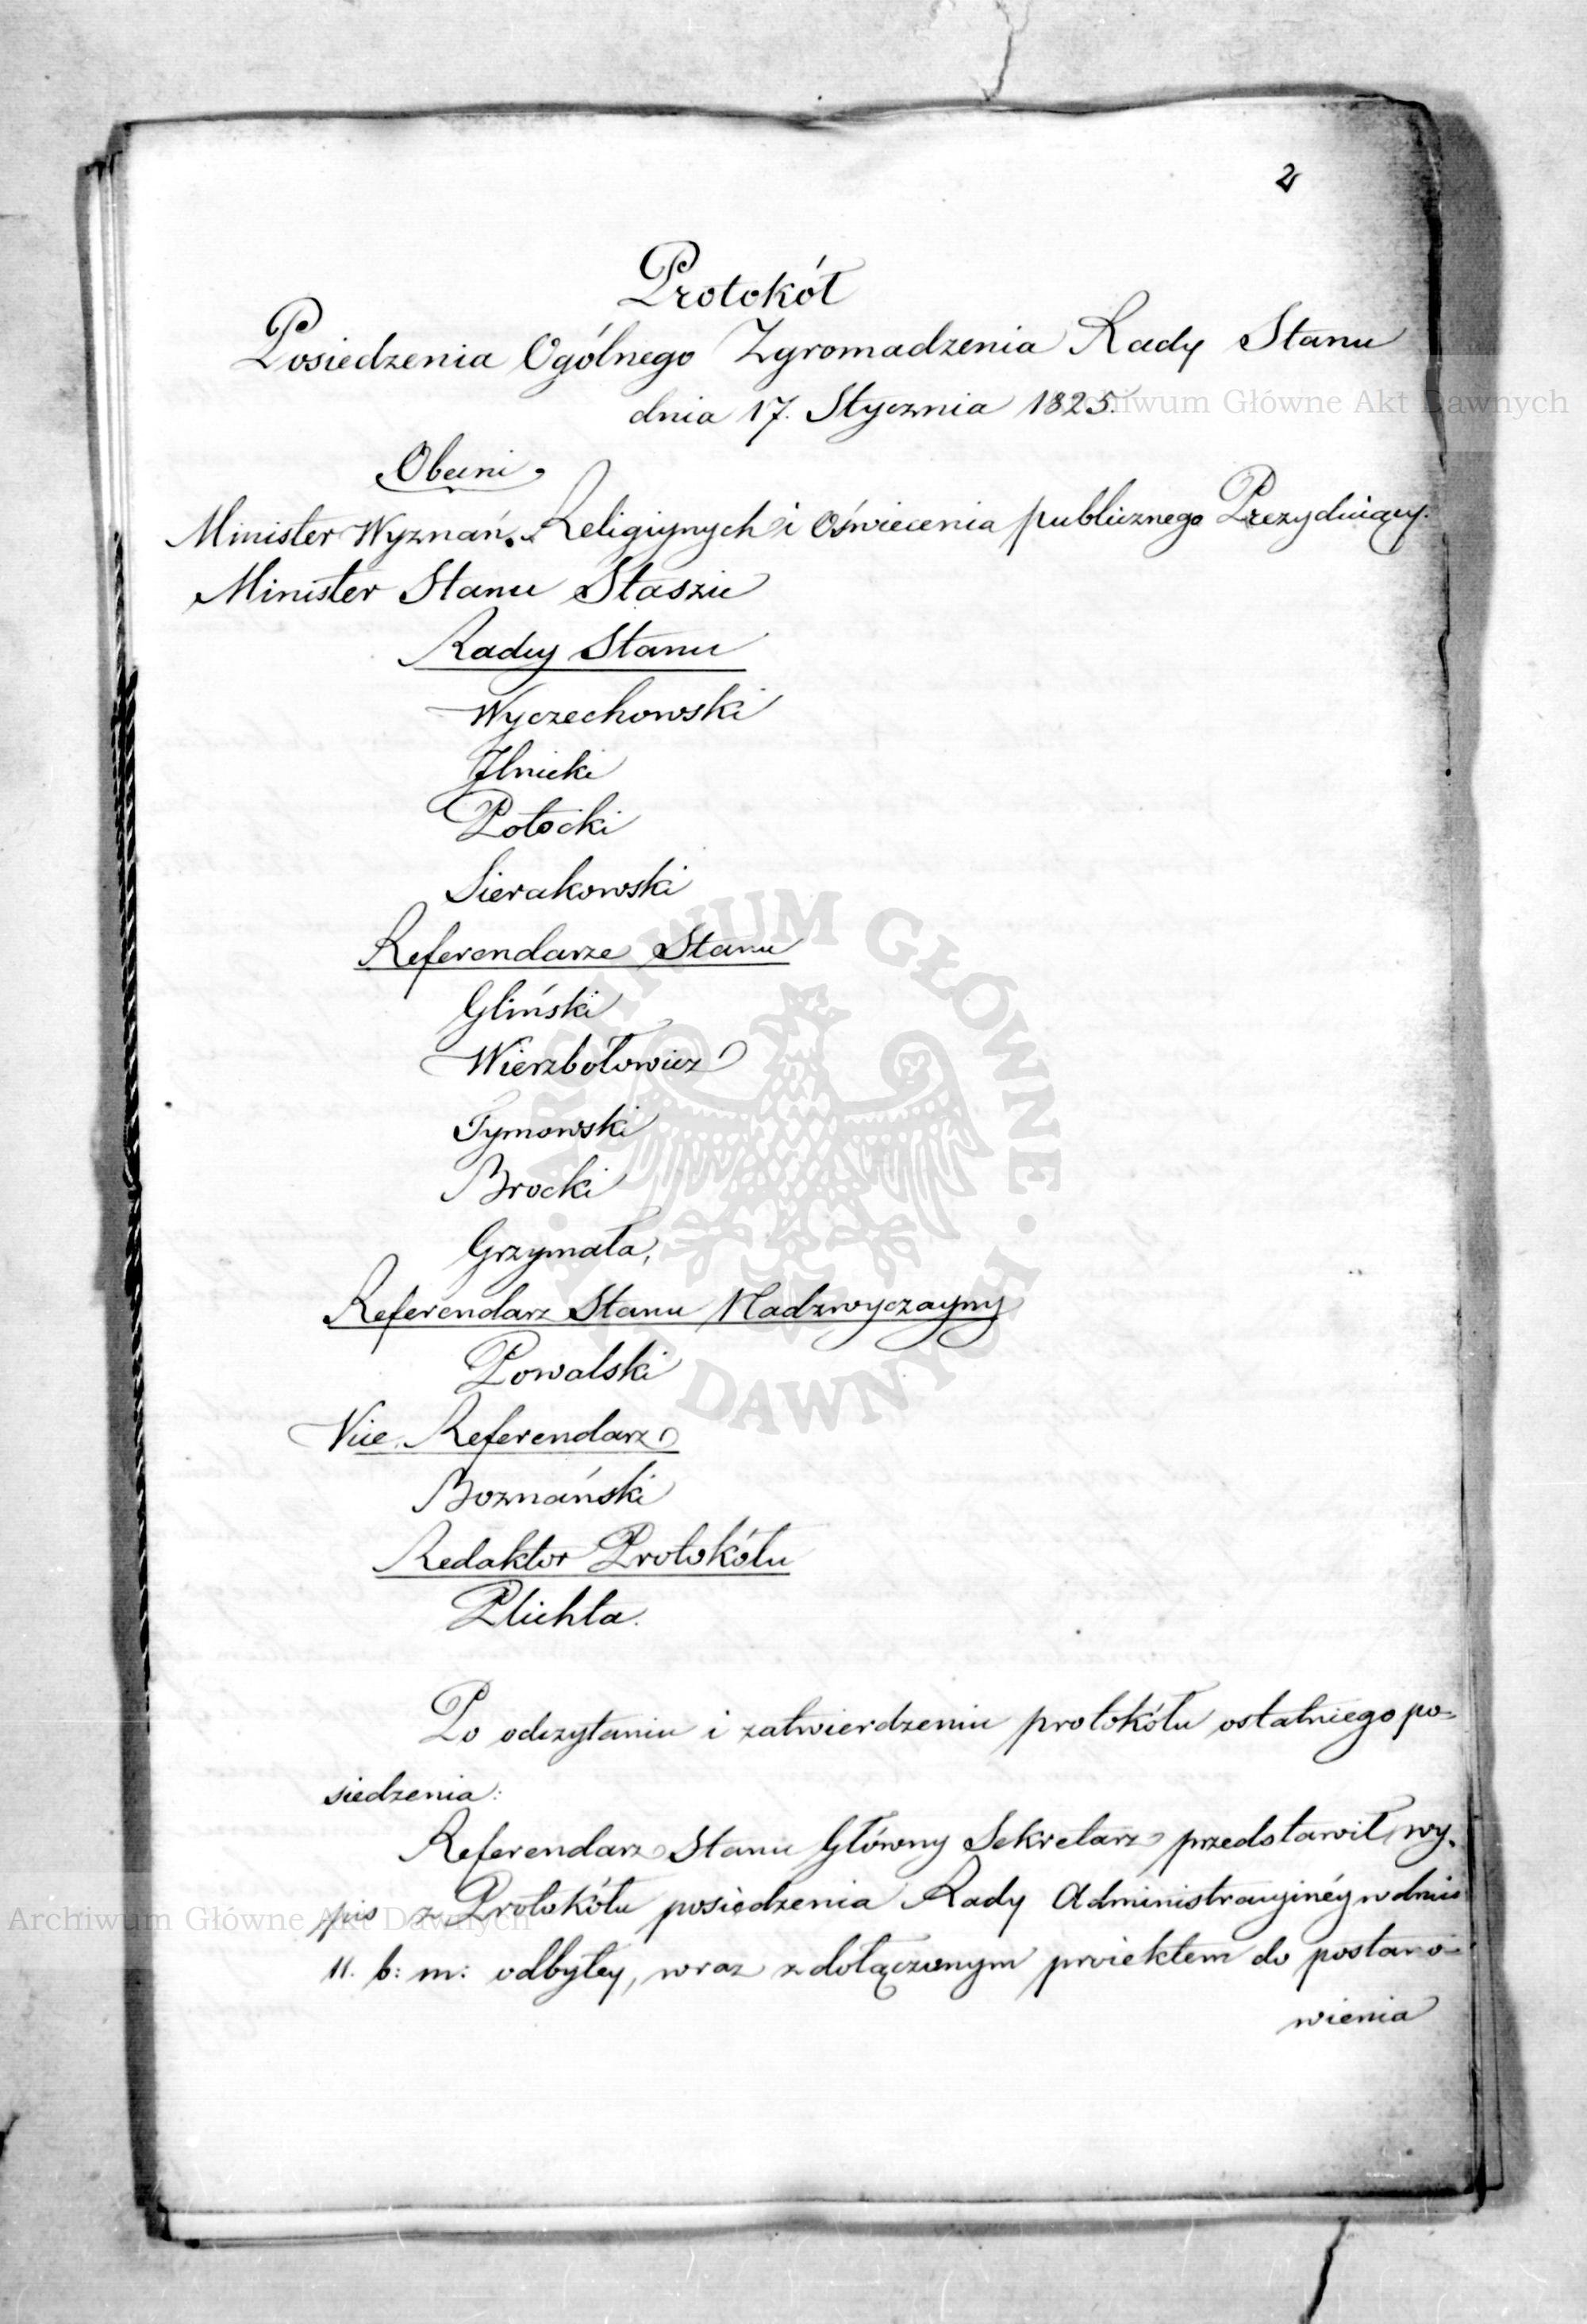 2
Protokół
Posiedzenia Ogólnego Zgromadzenia Rady Stanu
dnia 17. Stycznia 1825.
Obecni
Minister Wyznań Religiynych i Oświecenia publicznego Prezyduiący.
Minister Stanu Staszic
Radcy Stanu
Wyczechowski
Ilnicki
Potocki
Sierakowski
Referendarze Stanu
Gliński
Wierzbołowicz
Tymowski
Brocki
Grzymała,
Referendarz Stanu Nadzwyczayny
Powalski
Vice Referendarz
Boznański
Redaktor Protokółu
Plichta.
Po odczytaniu i zatwierdzeniu protokółu ostatniego po=
siedzenia:
Referendarz Stanu Główny Sekretarz przedstawił wy=
pis z Protokółu posiedzenia Rady Administracyinéy w dniu
11. b: m: odbytey, wraz z dołączonym proiektem do postano=
wienia
Archiwum Główne Akt Dawnych
ARCHIWUM GŁÓWNE AKT DAWNYCH
Archiwum Główne Akt Dawnych